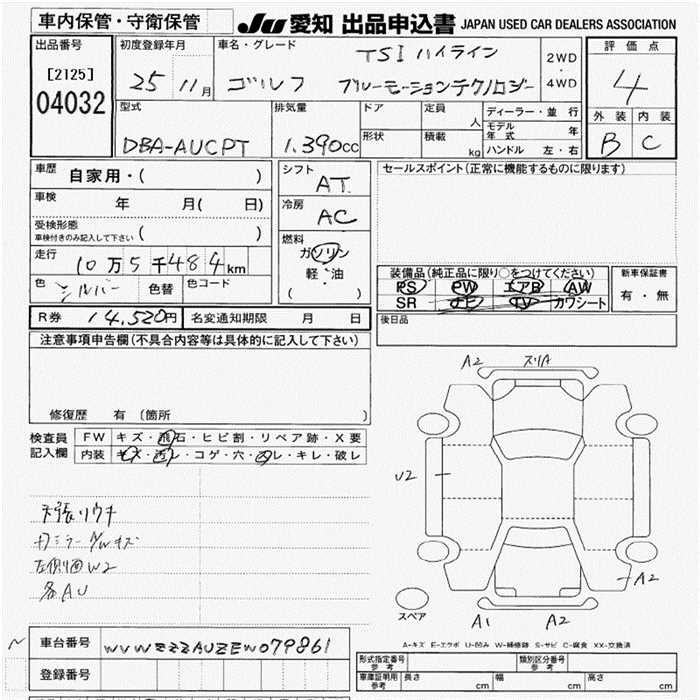 車内保管・守衛保管
JU 愛知 出品申込書 JAPAN USED CAR DEALERS ASSOCIATION
出品番号
[2125]
04032
初度登録年月
25 11月
車名・グレード
TSI ハイライン
ゴルフ ブルーモーションテクノロジー
2WD
・
4WD
評価点
4
外装 内装
B C
型式
DBA-AUCPT
排気量
1.390cc
ドア
形状
定員 人
積載 kg
ディーラー・並行
モデル年式 年
ハンドル 左・右
車歴 自家用・( )
車検 年 月( 日)
受検形態
車検付きのみ記入して下さい ( )
走行 10万5千484km
色 シルバー 色替 色コード
シフト AT
冷房 AC
燃料
ガソリン
軽・油
( )
セールスポイント(正常に機能するものに限ります)
装備品(純正品に限り○をつけてください)
PS PW エアB AW
SR ナビ TV カワシート
新車保証書
有・無
後日品
R券 14,520円 名変通知期限 月 日
注意事項申告欄(不具合内容等は具体的に記入して下さい)
修復歴 有(箇所 )
検査員記入欄
FW キズ・飛石・ヒビ割・リペア跡・X要
内装 キズ・汚レ・コゲ・穴・凹レ・キレ・破レ
天張リウチ
左側面W2
各AU
A2 スリA
U2
A2
スペア
A1 A2
A-キズ E-エクボ U-凹み W-補修跡 S-サビ C-腐食 XX-交換済
車台番号 WVWZZZAUZEW079861
登録番号
型式指定番号 参考
類別区分番号 参考
車庫証明用 参考 長さ cm 幅 cm 高さ cm